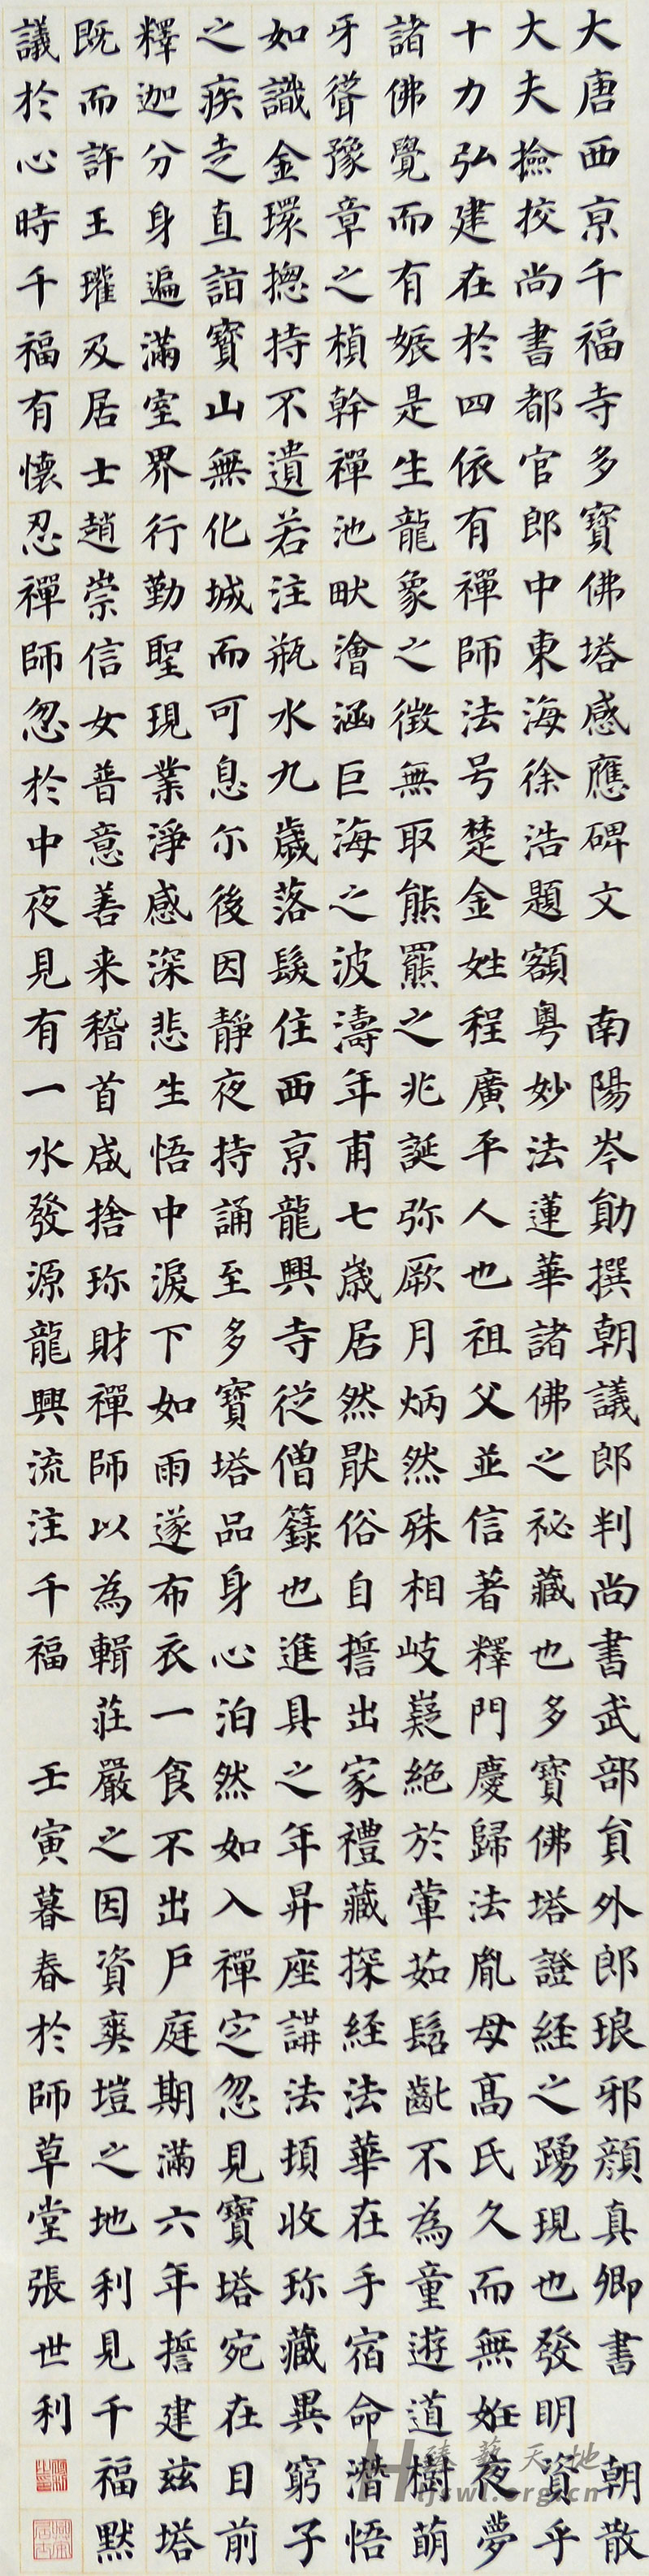 大唐西京千福寺多寶佛塔感應碑文 南陽岑勛撰朝議郎判尚書武部員外郎琅邪顏真卿書 朝散
大夫撿挍尚書都官郎中東海徐浩題額粵妙法蓮華諸佛之祕藏也多寶佛塔證經之踴現也發明資乎
十力弘建在於四依有禪師法号楚金姓程廣平人也祖父並信著釋門慶歸法胤母高氏久而無姙夜夢
諸佛覺而有娠是生龍象之徵無取熊羆之兆誕弥厥月炳然殊相岐嶷絕於葷茹髫齔不為童遊道樹萌
牙聳豫章之楨幹禪池畎澮涵巨海之波濤年甫七歲居然猒俗自誓出家禮藏探經法華在手宿命潛悟
如識金環揔持不遺若注瓶水九歲落髮住西京龍興寺從僧籙也進具之年昇座講法頓收珎藏異窮子
之疾走直詣寶山無化城而可息尒後因靜夜持誦至多寶塔品身心泊然如入禪定忽見寶塔宛在目前
釋迦分身遍滿室界行勤聖現業淨感深悲生悟中淚下如雨遂布衣一食不出戶庭期滿六年誓建茲塔
既而許王瓘及居士趙崇信女普意善来稽首咸捨珎財禪師以為輯莊嚴之因資爽塏之地利見千福默
議於心時千福有懷忍禪師忽於中夜見有一水發源龍興流注千福 壬寅暮春於師草堂張世利